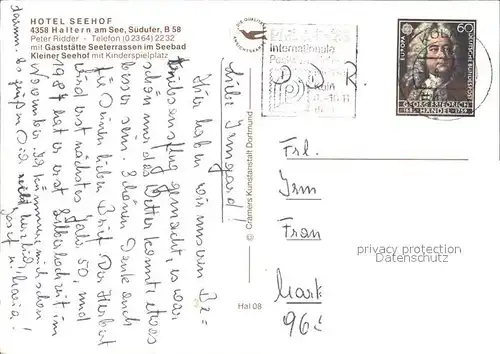 HOTEL SEEHOF
4358 Haltern am See, Südufer, B 58
Peter Ridder · Telefon (0 23 64) 22 32
mit Gaststätte Seeterrassen im Seebad
Kleiner Seehof mit Kinderspielplatz
Internationale
EUROPA
60
DEUTSCHE BUNDESPOST
GEORG FRIEDRICH
1685 HÄNDEL 1759
© Cramers Kunstanstalt Dortmund
Hal 08
Liebe Irmgard!
Hier haben wir unseren Be=
triebsausflug gemacht, es war
schön nur das Wetter könnte etwas
besser sein. Schönen Dank auch
für Deinen lieben Brief. Der Herbert
wird erst nächstes Jahr 50, und
1987 hat er erst Silberhochzeit im
November. Ich kümmere mich schon
darum. Es grüßen Dich herzlich
Josef u. Maria!
Frl.
Irm
Fran
Mark
privacy protection
Datenschutz